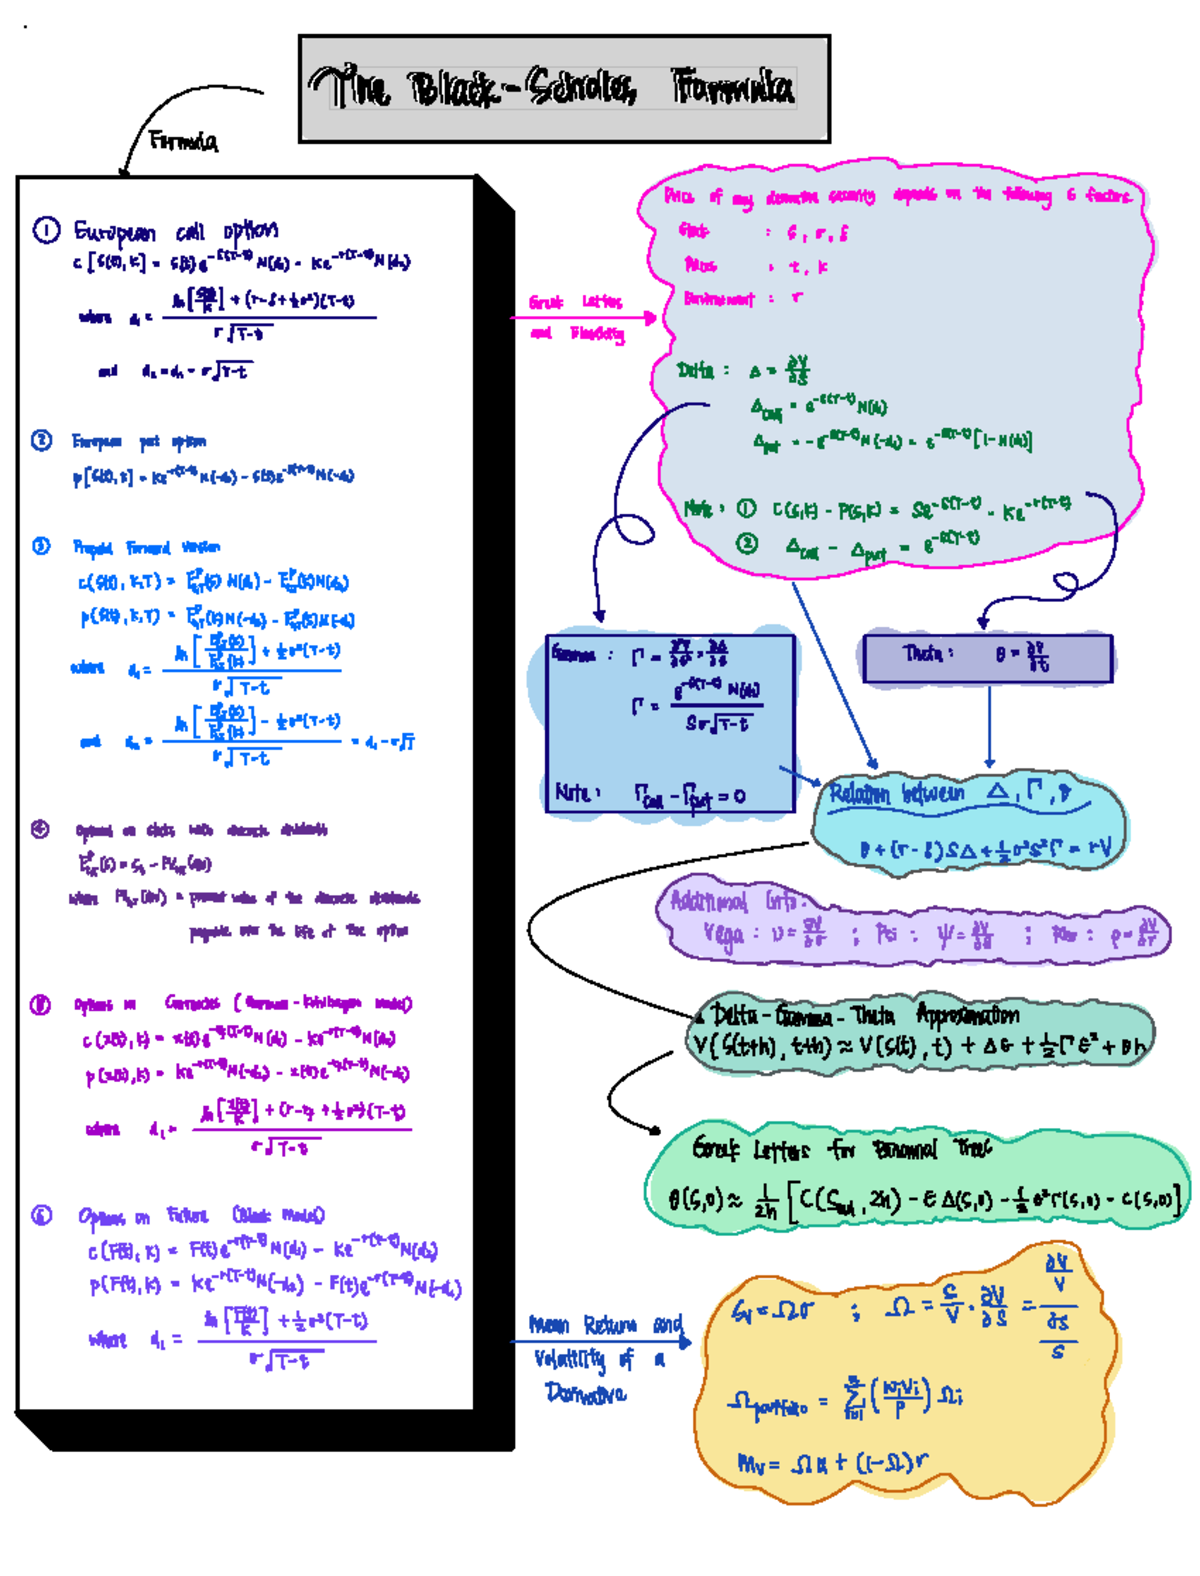 The Black-Scholes Formula
Formula
① European call option
C[S(t), K] = S(t)e^{-δ(T-t)}N(d₁) - Ke^{-r(T-t)}N(d₂)
where d₁ = ln[S(t)/K] + (r-δ+½σ²)(T-t) / σ√T-t
and d₂ = d₁ - σ√T-t
② European put option
P[S(t), K] = Ke^{-r(T-t)}N(-d₂) - S(t)e^{-δ(T-t)}N(-d₁)
③ Prepaid Forward version
C(S(t), K, T) = F^P_{t,T}(S) N(d₁) - F^P_{t,T}(K)N(d₂)
P(S(t), K, T) = F^P_{t,T}(K)N(-d₂) - F^P_{t,T}(S)N(-d₁)
where d₁ = ln[F^P_{t,T}(S)/F^P_{t,T}(K)] + ½σ²(T-t) / σ√T-t
and d₂ = ln[F^P_{t,T}(S)/F^P_{t,T}(K)] - ½σ²(T-t) / σ√T-t = d₁ - σ√T
④ Options on stocks with discrete dividends
F^P_{t,T}(S) = S_t - PV_{t,T}(div)
where PV_{t,T}(div) = present value of the discrete dividends
payable over the life of the option
⑤ Options on Currencies (Garman-Kohlhagen model)
C(x(t), K) = x(t)e^{-r_f(T-t)}N(d₁) - Ke^{-r(T-t)}N(d₂)
P(x(t), K) = Ke^{-r(T-t)}N(-d₂) - x(t)e^{-r_f(T-t)}N(-d₁)
where d₁ = ln[x(t)/K] + (r-r_f+½σ²)(T-t) / σ√T-t
⑥ Options on Future (Black model)
C(F(t), K) = F(t)e^{-r(T-t)}N(d₁) - Ke^{-r(T-t)}N(d₂)
P(F(t), K) = Ke^{-r(T-t)}N(-d₂) - F(t)e^{-r(T-t)}N(-d₁)
where d₁ = ln[F(t)/K] + ½σ²(T-t) / σ√T-t
Greek Letters
and Elasticity
Price of any derivative security depends on the following 6 factors
Stock : S, σ, δ
: t, K
Environment : r
Delta : Δ = ∂V/∂S
Δ_call = e^{-δ(T-t)}N(d₁)
Δ_put = -e^{-δ(T-t)}N(-d₁) = e^{-δ(T-t)}[1-N(d₁)]
Note : ① C(S,K) - P(S,K) = Se^{-δ(T-t)} - Ke^{-r(T-t)}
② Δ_call - Δ_put = e^{-δ(T-t)}
Gamma : Γ = ∂²V/∂S² = ∂Δ/∂S
Γ = e^{-δ(T-t)} N(d₁) / Sσ√T-t
Note : Γ_call - Γ_put = 0
Theta : θ = ∂V/∂t
Relation between Δ, Γ, θ
θ + (r-δ)SΔ + ½σ²S²Γ = rV
Additional
Vega : ν = ∂V/∂σ ; Psi : ψ = ∂V/∂δ ; Rho : ρ = ∂V/∂r
Delta-Gamma-Theta Approximation
V(S(t+h), t+h) ≈ V(S(t), t) + Δε + ½Γε² + θh
Greek Letters for Binomial Tree
θ(S,0) ≈ 1/2h [C(S_ud, 2h) - εΔ(S,0) - ½ε²Γ(S,0) - C(S,0)]
Mean Return and
Volatility of a
Derivative
S_V = Ωσ ; Ω = S/V · ∂V/∂S = ∂V/V / ∂S/S
Ω_portfolio = Σ_{i=1}^{n} (w_i V_i / P) Ω_i
m_V = Ωα + (1-Ω)r